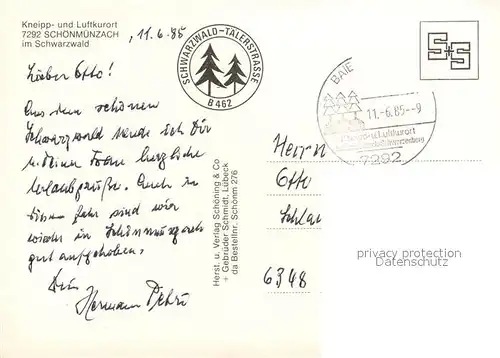 Kneipp- und Luftkurort
7292 SCHÖNMÜNZACH
im Schwarzwald
, 11.6.85
SCHWARZWALD-TÄLERSTRASSE
B 462
S+S
BAIE
11.-6.85--9
Kneipp u. Luftkurort
7292
Lieber Otto!
Aus dem schönen
Schwarzwald sende ich Dir
u. Deiner Frau herzliche
Urlaubsgrüße. Auch in
diesem Jahr sind wir
wieder in Schönmünzach
gut aufgehoben.
Dein
Hermann Petri
Herst. u. Verlag Schöning & Co
+ Gebrüder Schmidt, Lübeck
da Bestellnr. Schönm 276
Herrn
Otto
Schla
6348
privacy protection
Datenschutz